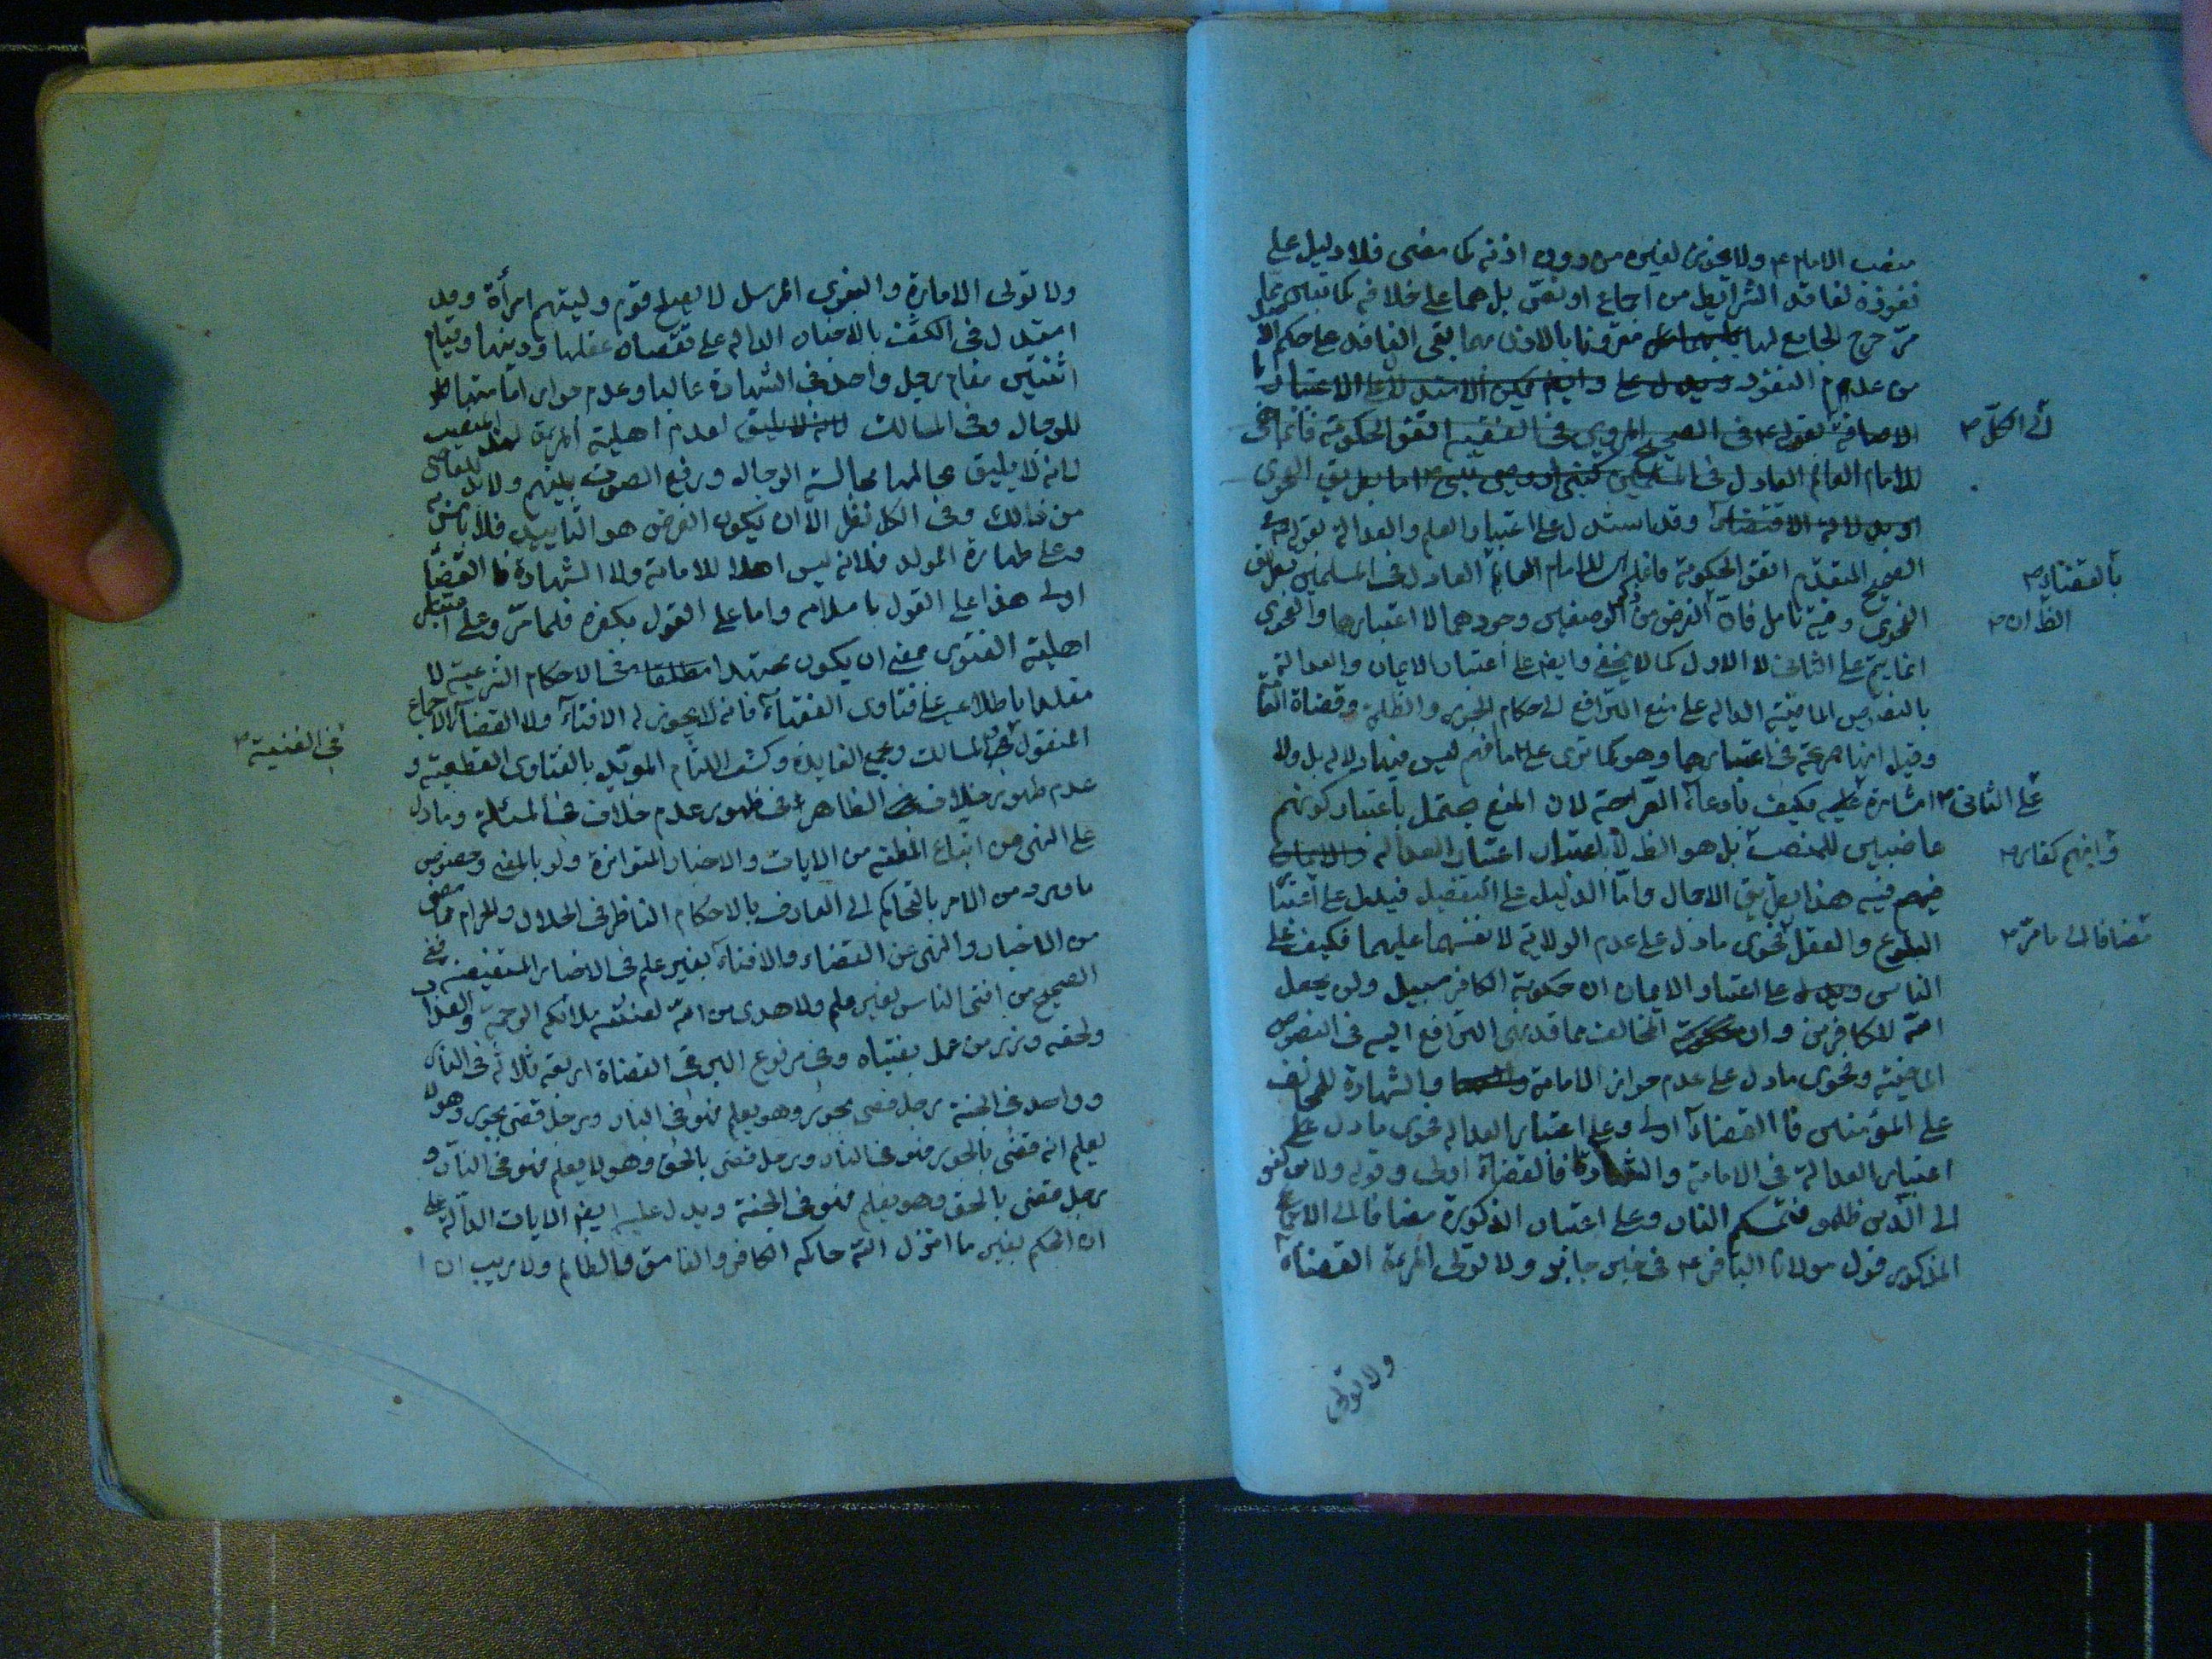 منصب الامام ع ولا يجوز لغيره من دون اذنه كما مضى فلا دليل على
نفوذه لفاقد الشرائط من اجماع او نص بل هما على خلافه كما
مرّ خرج الجامع لها مقرونا بالاذن مهما بقى الفاقد على حكم الا
من عدم النفوذ
الاضافة لقوله ع فى الصحيح المروى فى الفقيه اتقو الحكومة فانما هى
للامام العالم العادل فى المسلمين كنبى او وصى نبى اما بطريق الفحوى
او بدلالة الاقتضاء وقد استدل على اعتبار العلم والعدالة بقوله ع
الصحيح المتقدم اتقو الحكومة فانها للامام العالم العادل فى المسلمين بطريق
الفحوى وفيه تامل فان الغرض من الوصفين وجودهما لا اعتبارهما والفحوى
انما يتم على الثانى لا الاول كما لا يخفى وايضا على اعتبار الايمان والعدالة
بالنصوص الماضية الدالة على منع الترافع الى حكام الجور والظلمة وقضاة العامة
وقيل انها صريحة فى اعتبارهما وهو كما ترى على ما فهم ليس فيها دلالة بل ولا
اشارة عليه فكيف بادعاء الصراحة لان المنع يحتمل باعتبار كونهم
غاصبين للمنصب بل هو الظ لا باعتبار اعتبار العدالة والايمان
فيهم فيه هذا بطريق الاجمال واما الدليل على التفصيل فيدل على اعتبار
البلوغ والعقل فحوى ما دل على عدم الولاية لانفسهما عليهما فكيف على
الناس ويدل على اعتبار الايمان ان حكومة الكافر سبيل ولن يجعل
الله للكافرين وان حكومة المخالف مما قد نهى الترافع اليه فى النصوص
الماضية وفحوى ما دل على عدم جواز الامامة والشهادة للمخالف
على المؤمنين فالقضاء اولى وعلى اعتبار العدالة فحوى ما دل على
اعتبار العدالة فى الامامة والشهادة فالقضاء اولى وقوله ولا تركنو
الى الذين ظلمو فتمسكم النار وعلى اعتبار الذكورة مضافا الى الاجماع
المذكور قول مولانا الباقر ع فى خبر جابر ولا تولى المرءة القضاء
الى الكل
بالقضاء
الظ ان
على الثانى
وانهم كفار
مضافا الى ما مرّ
ولا تولى
ولا تولى الامارة والنبوى المرسل لا يصلح قوم وليتهم امرأة وقد
استدل فى الكشف بالاخبار الدالة على نقصان عقلها ودينها وقيام
اثنتين مقام رجل واحد فى الشهادة غالبا وعدم جواز امامتها
للرجال وفى المسالك لعدم اهلية المرءة لهذا المنصب
لانه لا يليق بحالها مجالسة الرجال ورفع الصوت بينهم ولا بد للقاضى
من ذلك وفى الكل نظر الا ان يكون الغرض هو التاييد فلا باس به
وعلى طهارة المولد فلانه ليس اهلا للامامة ولا الشهادة فالقضاء
اولى هذا على القول باسلامه واما على القول بكفره فلما مرّ وعلى
اهلية الفتوى بمعنى ان يكون مجتهدا مطلقا فى الاحكام الشرعية لا
مقلدا باطلاعه على فتاوى الفقهاء فانه لا يجوز له الافتاء ولا القضاء الاجماع
المنقول فى المسالك ومجمع الفايدة وكشف اللثام المويّد بالفتاوى القطعية و
عدم ظهور خلاف الظاهر فى ظهور عدم خلاف فى المسئلة وما دل
على النهى عن اتباع المظنة من الايات والاخبار المتواترة ولو بالمعنى وخصوص
ما ورد من الامر بالتحاكم الى العارف بالاحكام الناظر فى الحلال والحرام مما مضى
من الاخبار والنهى عن القضاء والافتاء بغير علم فى الاخبار المستفيضة ففى
الصحيح من افتى الناس بغير علم ولا هدى من الله لعنته ملائكة الرحمة والعذاب
ولحقه وزر من عمل بفتياه وفى مرفوع البرقى القضاة اربعة ثلاثة فى النار
وواحد فى الجنة رجل قضى بجور وهو يعلم فهو فى النار ورجل قضى بجور وهو لا
يعلم انه قضى بالجور فهو فى النار ورجل قضى بالحق وهو لا يعلم فهو فى النار و
رجل قضى بالحق وهو يعلم فهو فى الجنة ويدل عليه ايضا الايات الدالة على
ان الحكم بغير ما انزل الله حاكمه الكافر والفاسق والظالم ولا ريب ان
فى الغنية